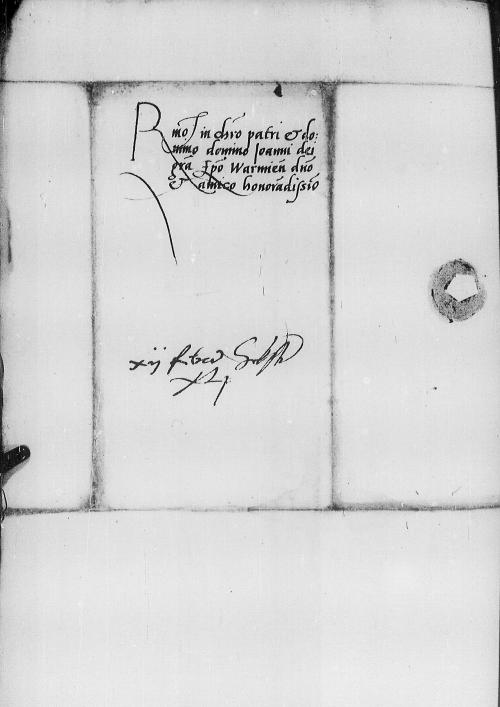 Rmo in chro patri et do:
mino domino Joanni dei
gra Epo Warmien dno
et amico honoradissio
xij
XLj